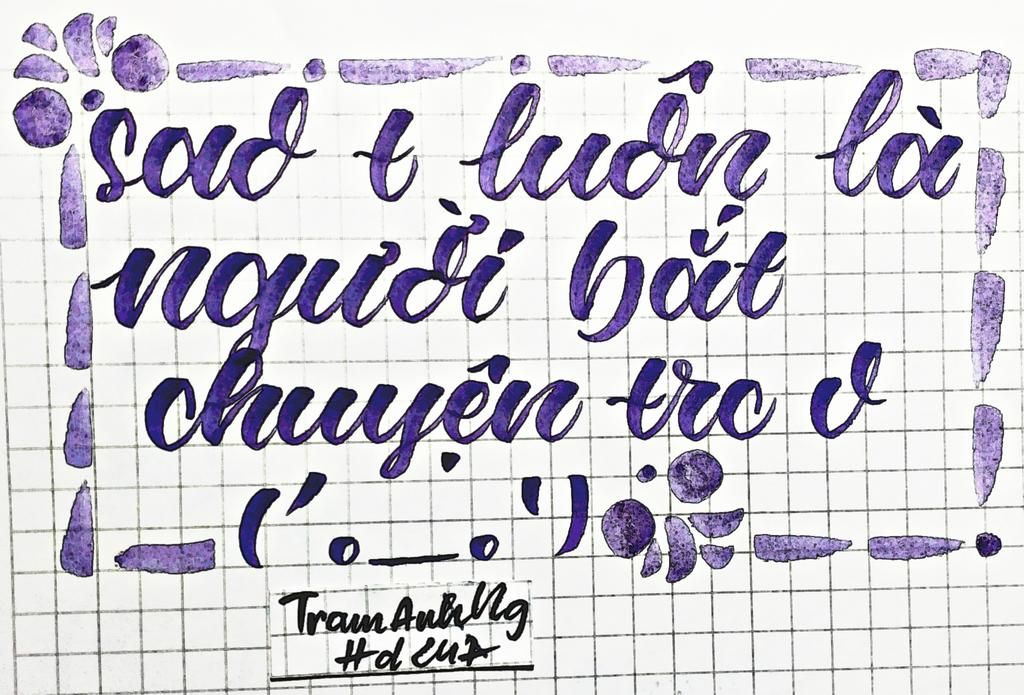 sao t luôn là
người bắt
chuyện trc v
(' o__o ')
TramAnhNg